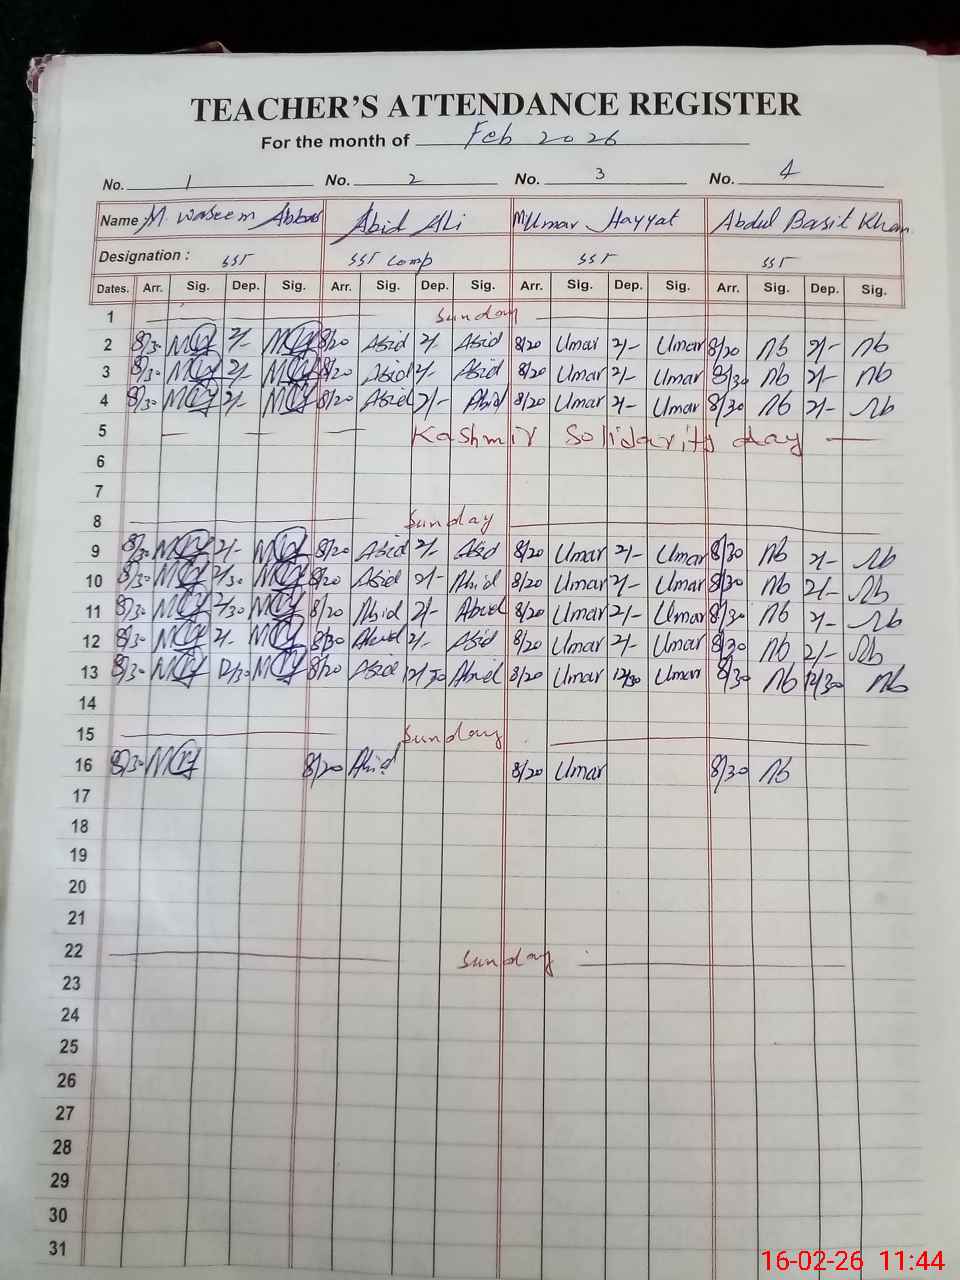 TEACHER'S ATTENDANCE REGISTER
For the month of Feb 2026
No. 1 No. 2 No. 3 No. 4
Name: M. Waseem Abbas Abid Ali M Umar Hayyat Abdul Basit Khan
Designation : SST SST Comp SST SST
Dates. Arr. Sig. Dep. Sig. Arr. Sig. Dep. Sig. Arr. Sig. Dep. Sig. Arr. Sig. Dep. Sig.
1 Sunday
2 8/30 2/- 8/20 Abid 2/- Abid 8/20 Umar 2/- Umar 8/20 Nb 2/- Nb
3 8/30 2/- 8/20 Abid 2/- Abid 8/20 Umar 2/- Umar 8/30 Nb 2/- Nb
4 8/30 2/- 8/20 Abid 2/- Abid 8/20 Umar 2/- Umar 8/30 Nb 2/- Nb
5 Kashmir Solidarity day
6
7
8 Sunday
9 8/30 2/- 8/20 Abid 2/- Abid 8/20 Umar 2/- Umar 8/30 Nb 2/- Nb
10 8/30 2/30 8/20 Abid 2/- Abid 8/20 Umar 2/- Umar 8/30 Nb 2/- Nb
11 8/30 2/30 8/20 Abid 2/- Abid 8/20 Umar 2/- Umar 8/30 Nb 2/- Nb
12 8/30 2/- 8/30 Abid 2/- Abid 8/20 Umar 2/- Umar 8/30 Nb 2/- Nb
13 8/30 12/30 8/20 Abid 12/30 Abid 8/20 Umar 12/30 Umar 8/30 Nb 12/30 Nb
14
15 Sunday
16 8/30 8/20 Abid 8/20 Umar 8/30 Nb
17
18
19
20
21
22 Sunday
23
24
25
26
27
28
29
30
31
16-02-26 11:44